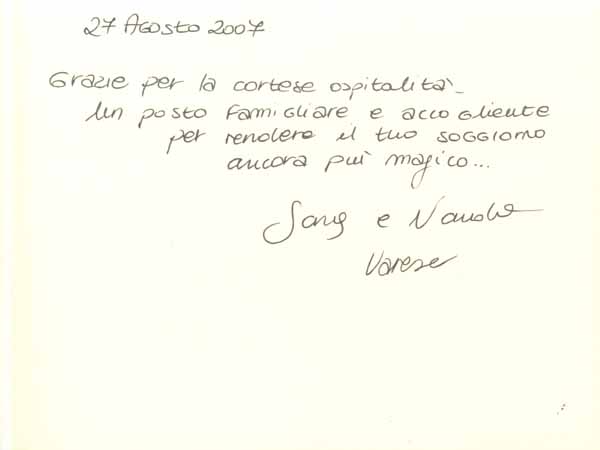 27 Agosto 2007
Grazie per la cortese ospitalità
Un posto famigliare e accogliente
per rendere il tuo soggiorno
ancora più magico...
e
Varese